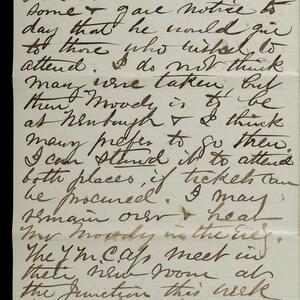 some & gave notice to
day that he would give
to those who wished to
attend. I do not think
many were taken, but
then Moody is to be
at Newburgh & I think
many prefer to go there.
I can stand it to attend
both places, if tickets can
be procured. I may
remain over & hear
Mr Moody in the Eve'g.
The Y M. C. A's meet in
their new room at
the Junction this week